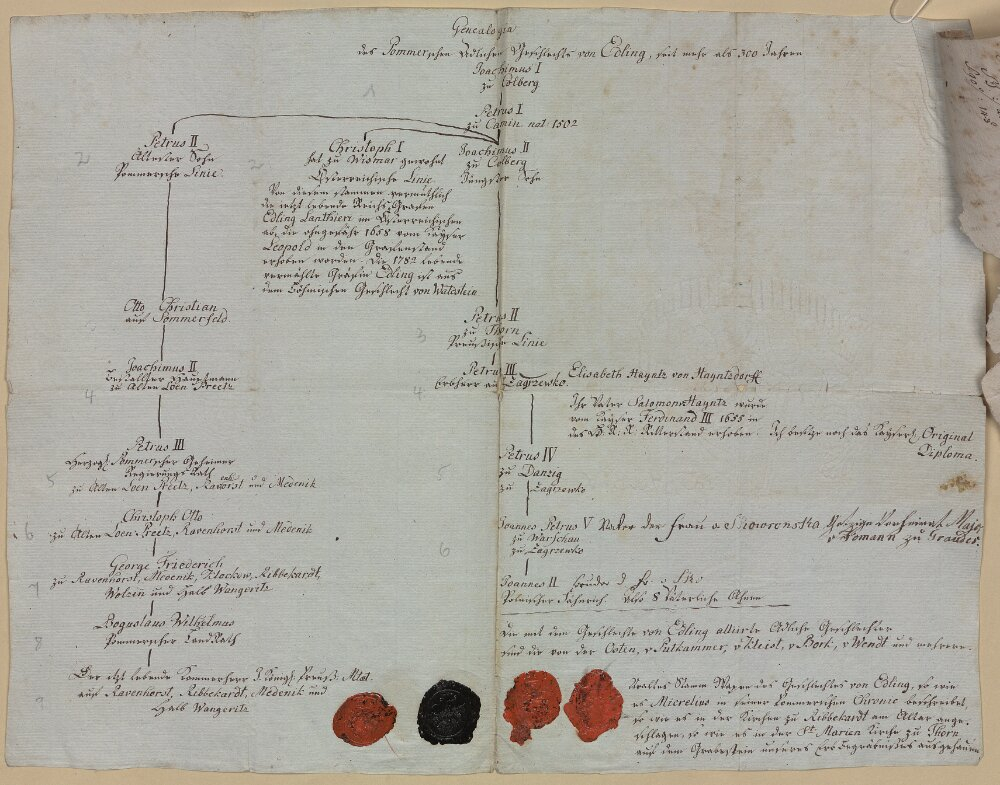 Genealogia
des Pommerschen Adlichen Geschlechts von Edling, seit mehr als 300 Jahren
Joachimus I
zu Colberg
Petrus I
zu Camin nat. 1502
Petrus II
Ältester Sohn
Pommersche Linie.
Christoph I
hat zu Wismar gewohnt
Österreichische Linie
Von diesem stammen vermuthlich
die jetzt lebende Reichs Grafen
Edling Lanthieri im Österreichischen
ab, die ohngefähr 1658 vom Kayser
Leopold in den Grafenstand
erhoben worden. Die 1782 lebende
vermählte Gräfin Edling ist aus
dem Böhmischen Geschlecht von
Joachimus II
zu Colberg
Jüngster Sohn
Otto Christian
auf Sommerfeld.
Petrus II
zu Thorn
Preußische Linie
Joachimus II
Bestallter Hauptmann
zu Alten
Petrus III
Erbherr auf Zagrzewko.
Elisabeth Hayntz von Hayntzdorff
Ihr Vater Salomon Hayntz wurde
vom Kayser Ferdinand III 1655 in
des H. R. R. Ritterstand erhoben. Ich besitze noch das Kayserl. Original
Diploma.
Petrus III
Herzogl. Pommerscher Geheimer
Regierungs Rath
zu Alten und Medenik
Petrus IV
zu Danzig
zu Zagrzewko
Christoph Otto
zu Alten Ravenhorst und Medenik
Joannes Petrus V Vater der Frau v Skworonska
zu Warschau
zu Zagrzewko
George Friederich
zu Ravenhorst, Medenik, Klockow, Ribbekardt,
Wolzin und Halb Wangeritz
Joannes II. Bruder d Fr. v
Polnischer Fähnrich. Also 8 Väterliche Ahnen
Boguslaus Wilhelmus
Pommerscher Land Rath
Die mit dem Geschlechte von Edling alliirte Adliche Geschlechter
sind die von der Osten, v Putkammer, v Kleist, v Bork, v Wendt und mehrere.
Der itzt lebende Kammerherr
auf Ravenhorst, Ribbekardt, Medenik und
Halb Wangeritz
Uraltes Stamm Wapen des Geschlechtes von Edling, so wie
es Micrelius in seiner Pommerschen Chronic beschreibet,
so wie es in der Kirchen zu Ribbekardt am Altar ange-
schlagen, so wie es in der St Marien Kirche zu Thorn
auf dem Grabstein unseres Erbbegräbnisses ausgehauen